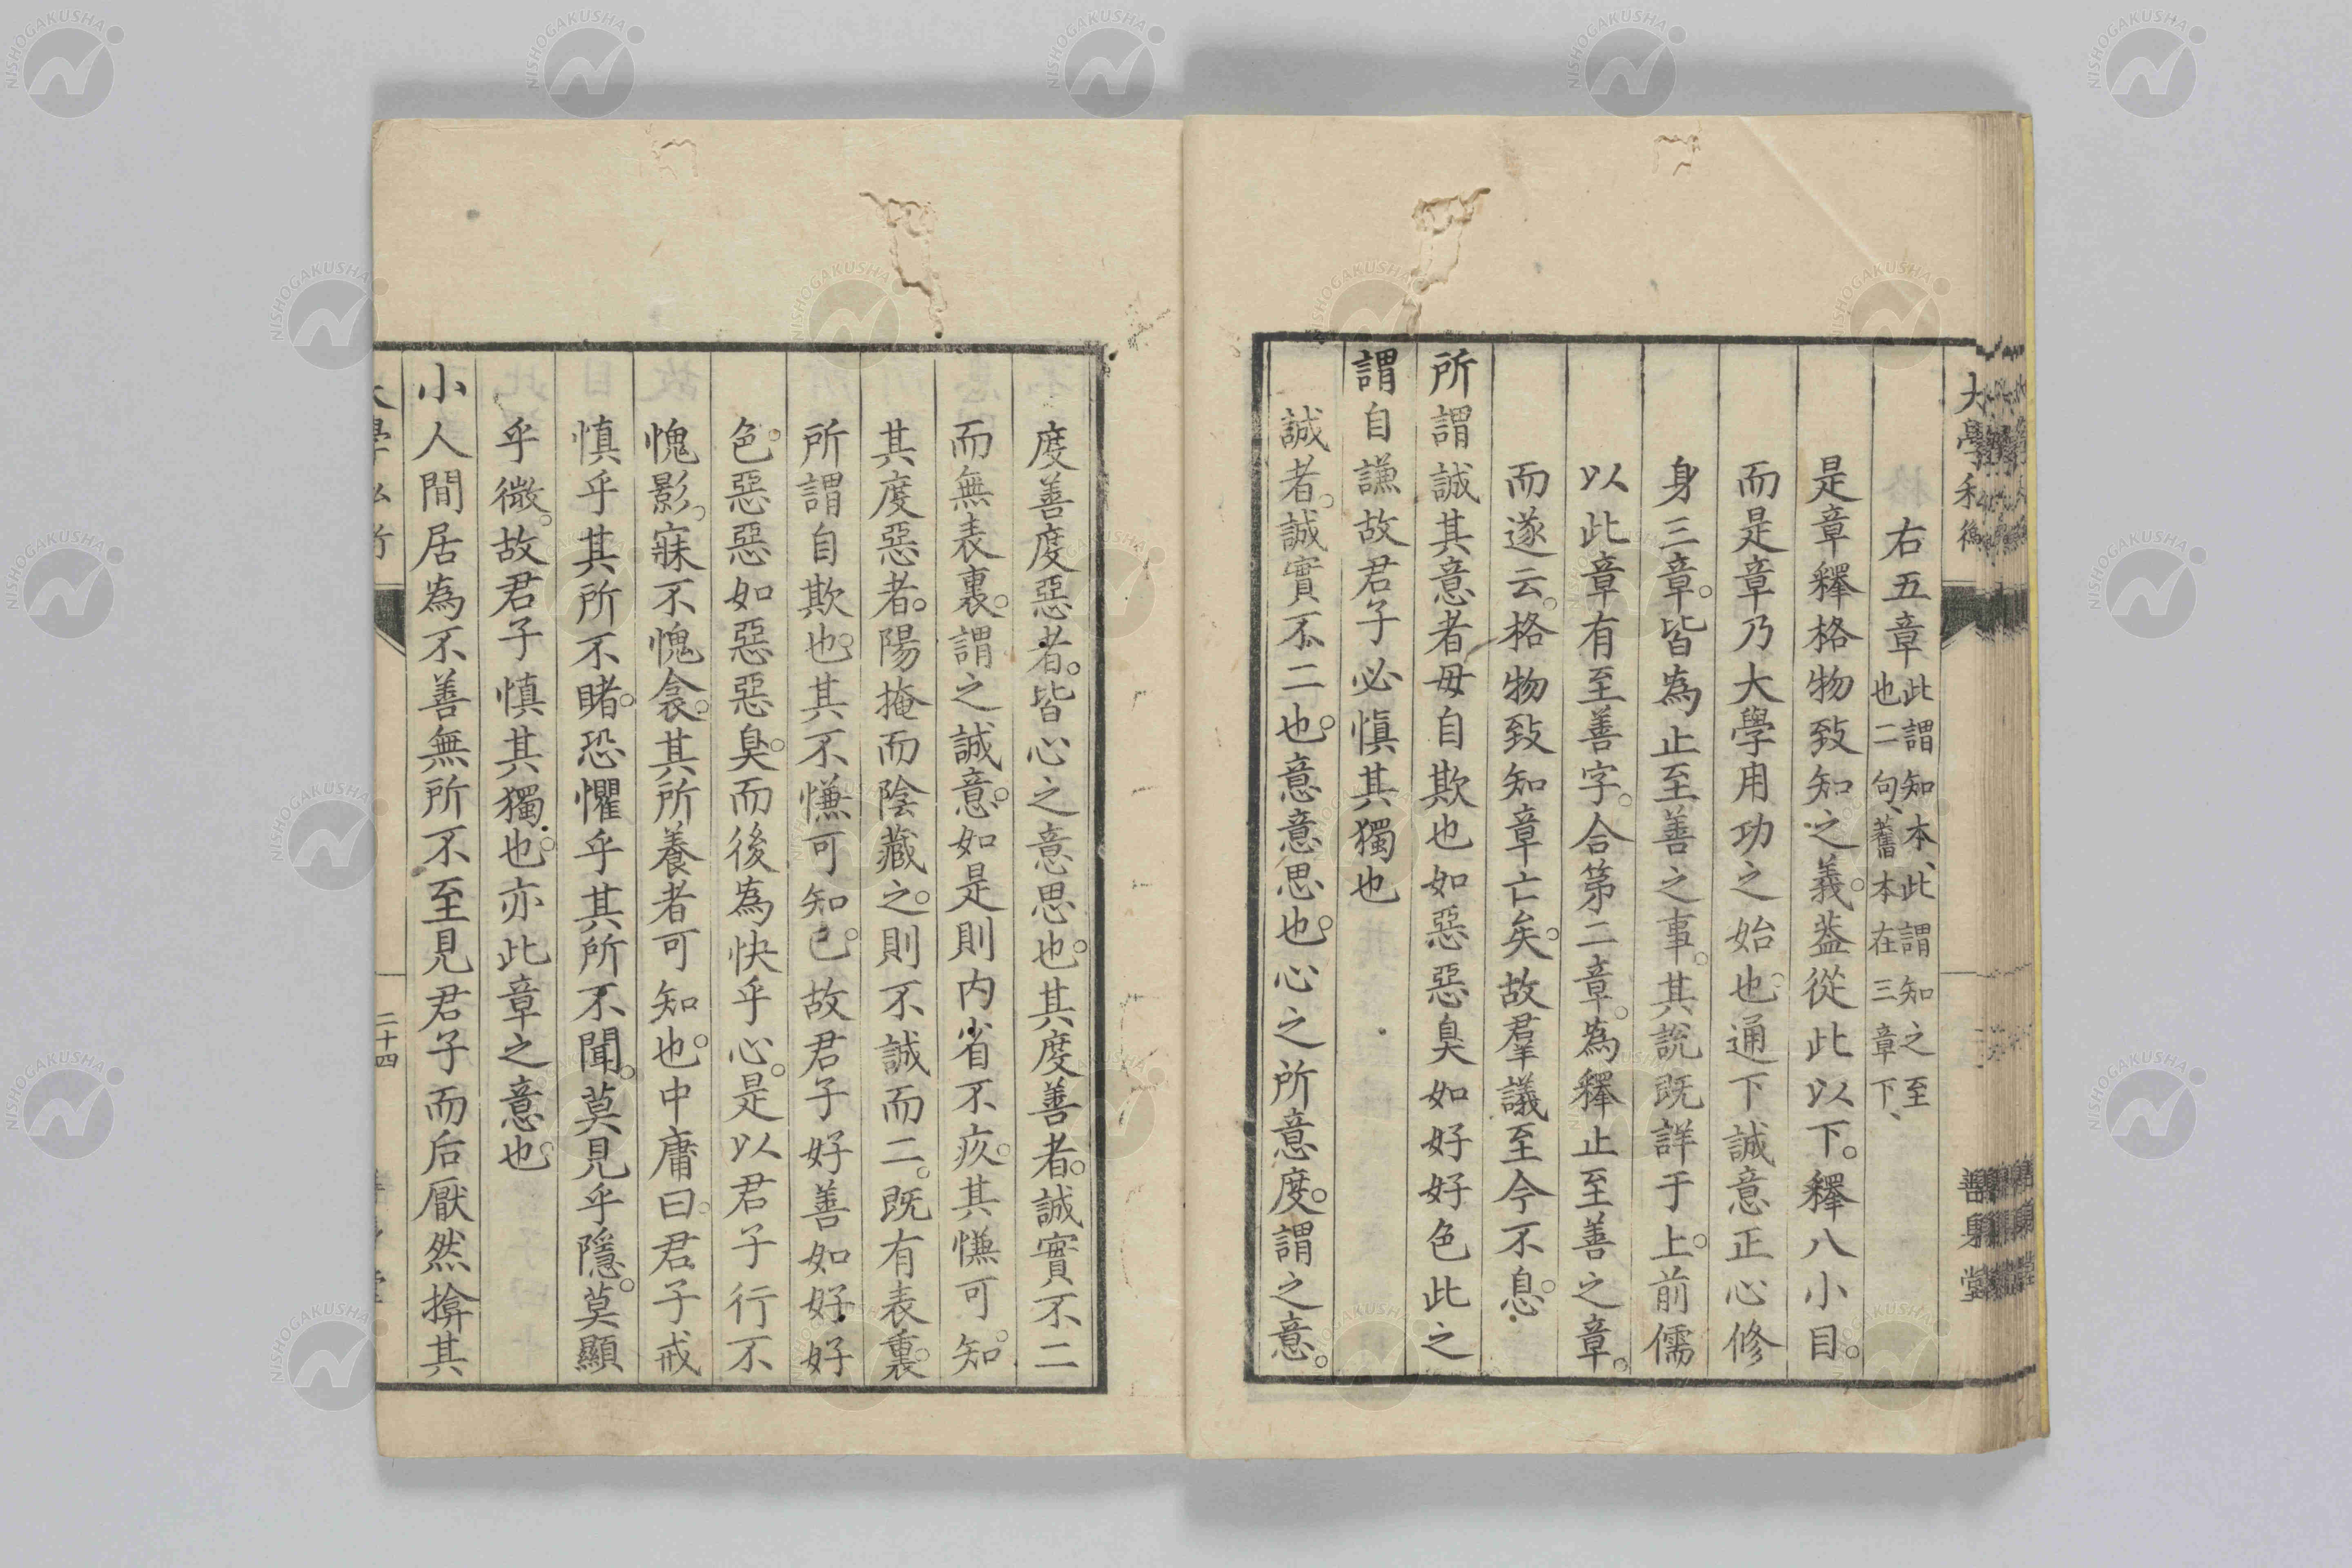 右五章此謂知本、此謂知之至也二句、舊本在三章下、
是章釋格物致知之義。葢從此以下。釋八小目。
而是章乃大學用功之始也。通下誠意正心修
身三章。皆為止至善之事。其說既詳于上。前儒
以此章有至善字。合第二章。為釋止至善之章。
而遂云。格物致知章亡矣。故羣議至今不息。
所謂誠其意者毋自欺也如惡惡臭如好好色此之
謂自謙故君子必慎其獨也
誠者。誠實不二也。意意思也。心之所意度。謂之意。
度善度惡者。皆心之意思也。其度善者。誠實不二
而無表裏。謂之誠意。如是則内省不疚。其慊可知。
其度惡者。陽掩而陰藏之。則不誠而二。既有表裏。
所謂自欺也。其不慊可知已。故君子好善如好好
色。惡惡如惡惡臭。而後為快乎心。是以君子行不
愧影。寐不愧衾。其所養者可知也。中庸曰。君子戒
慎乎其所不睹。恐懼乎其所不聞。莫見乎隱。莫顯
乎微。故君子慎其獨也。亦此章之意也。
小人間居為不善無所不至見君子而后厭然揜其
二十四
NISHOGAKUSHA